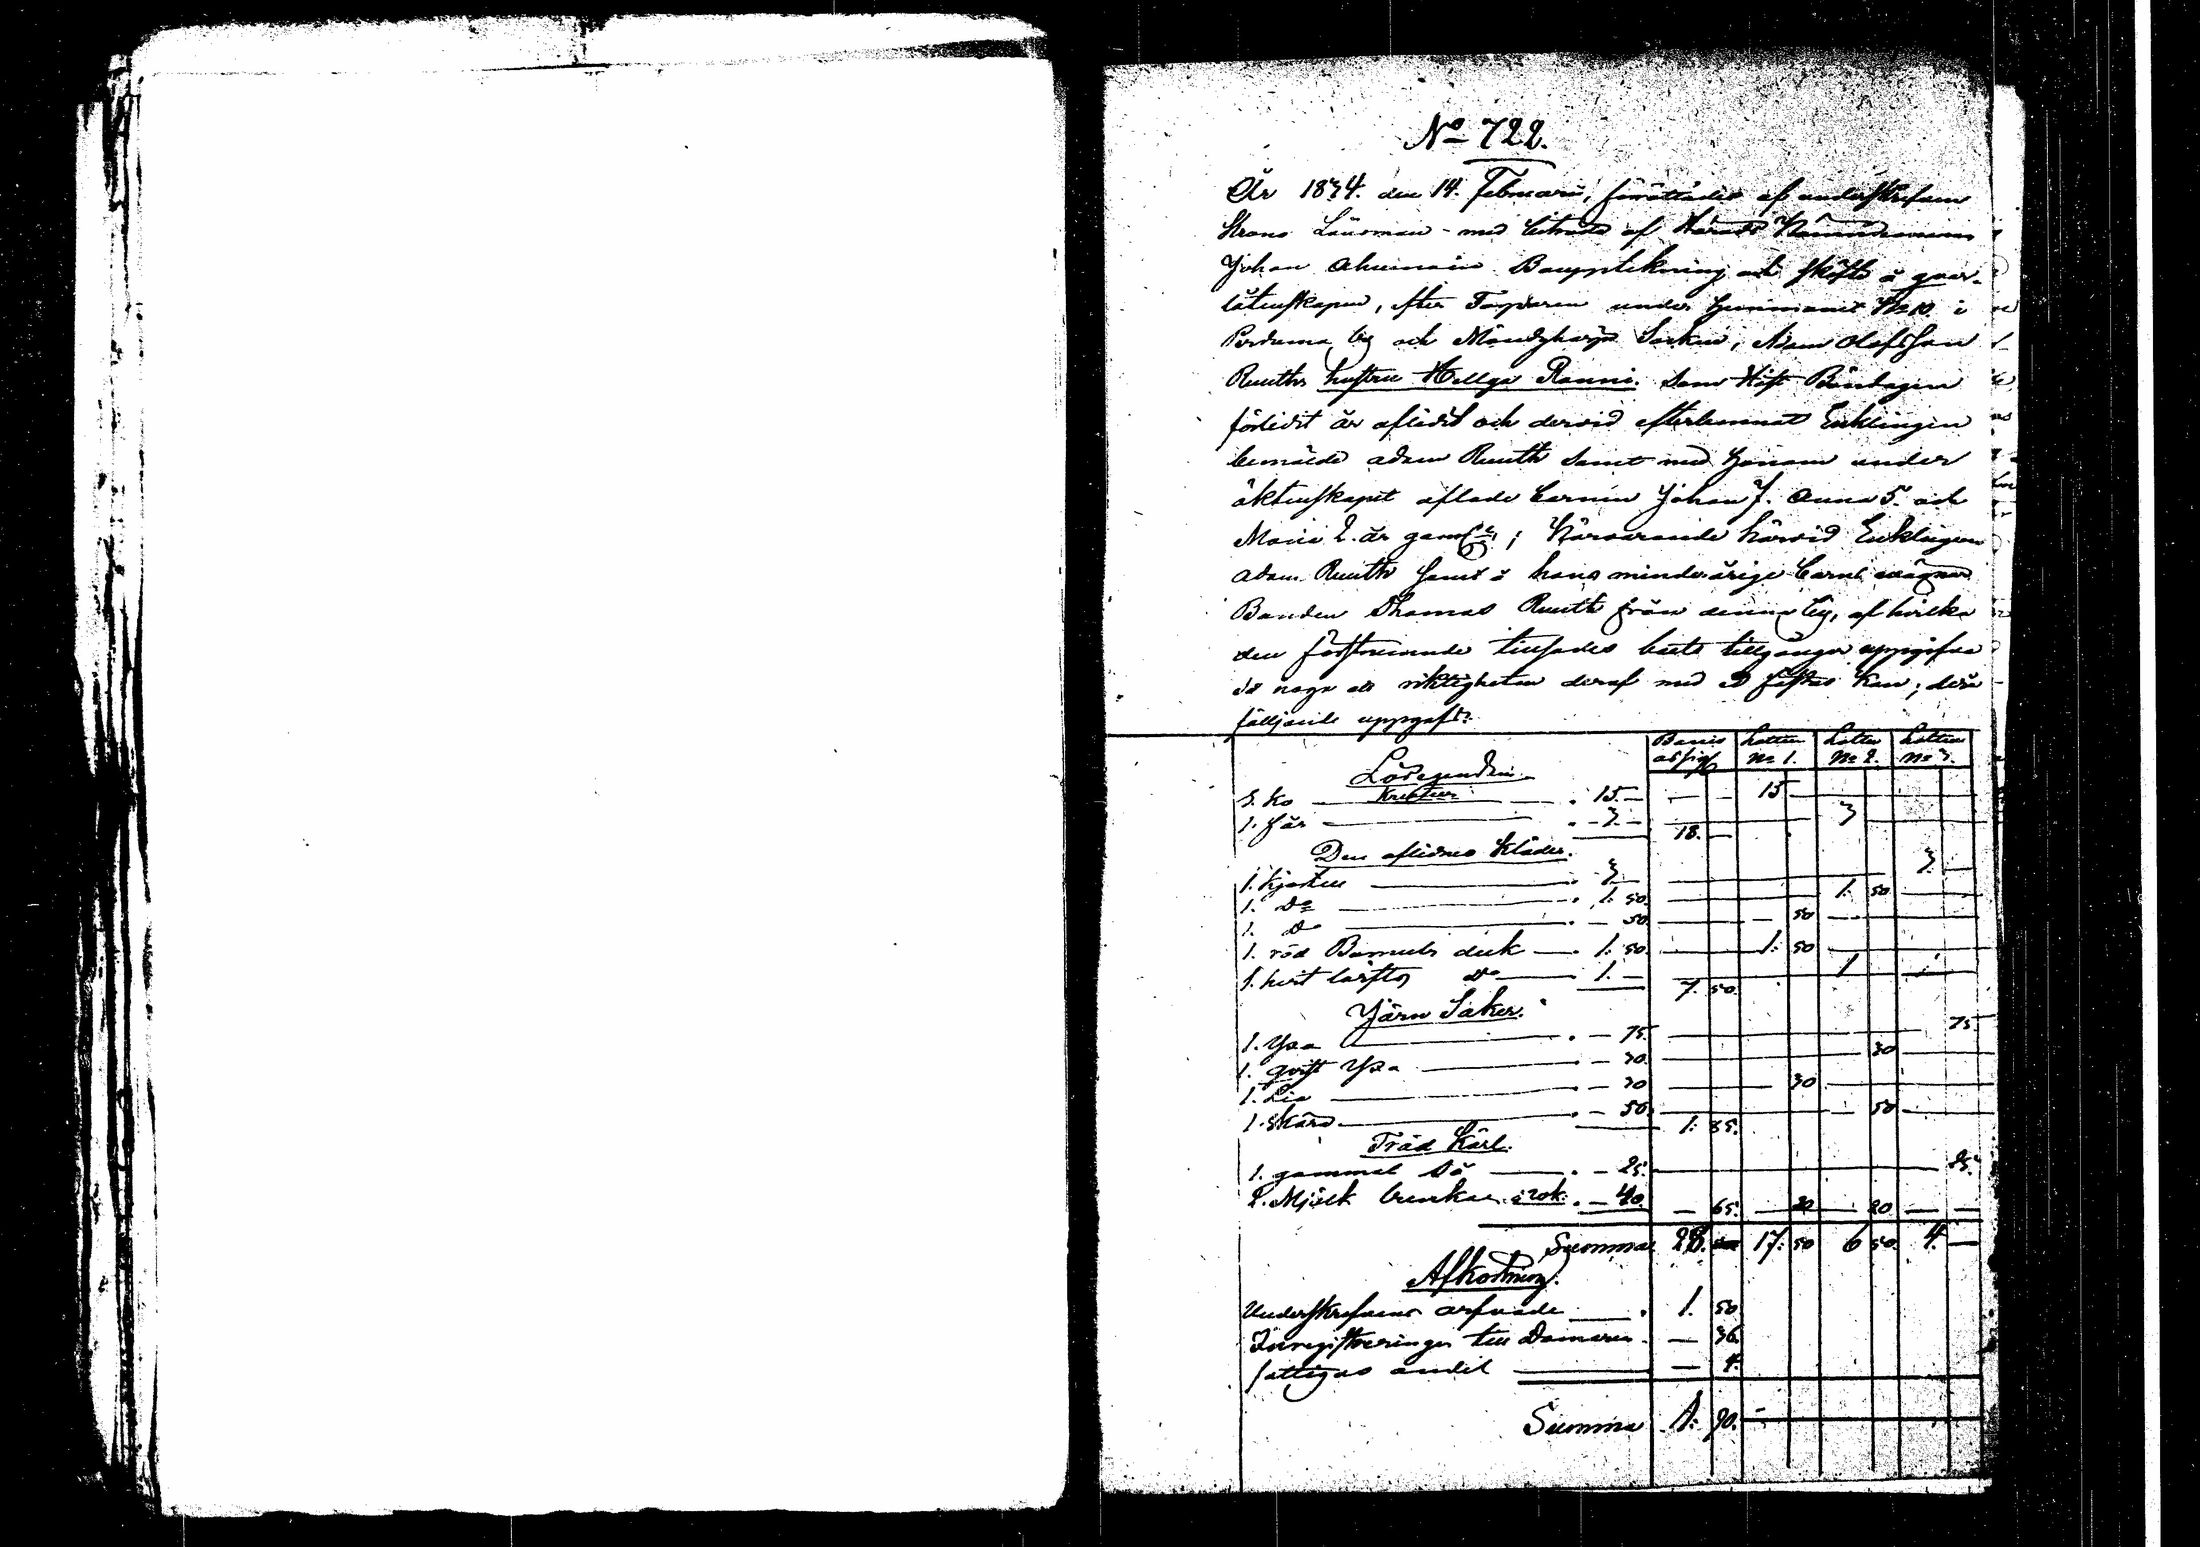 No 722.
År 1834. den 14. Februari, förrättades af underskrefven
Krono Länsman med biträde af Härads Nämndemannen
Johan Bouppteckning och skifte å qvar-
låtenskapen, efter Torparen under Hemmanet No 10. i
by och Socken, Adam Olofsson
Ruuths hustru Hellga Ranni. som sist Böndagen
förledit år aflidit och dervid efterlemnat Enklingen
bemälde Adam Ruuth samt med honom under
äktenskapet aflade barnen Johan 7. Anna 5. och
Maria 2. år gaml:a; Närvarande härvid Enklingen
Adam Ruuth samt å hans minderårige barns vägnar
Bonden Thomas Ruuth från denna by, af hvilka
den förstnemnde tillsades boets tillgångar uppgifva
så noga att riktigheten deraf med Ed fästas kan; deraf
följande uppgaft:
Banco assign lotten No 1. lotten No 2. lotten No 3.
Lösegendom
Kreatur
1. Ko 15. — 15
1. får 3. — 18. — 3
Den aflidnes Kläder.
1. Kjortell 3 — 3. —
1. Do 1. 50. 1. 50
1. Do — 50. — 50
1. röd Bomulls duk 1. 50. 1. 50
1. hvit lärfts Do 1. — 7. 50. 1
Järn Saker.
1. Yxa — 75. 75.
1. qvist Yxa — 30. 30
1. Lia — 30 30
1. Skära — 50. 1. 85. 50
Träd Kärl.
1. gammal Så — 25. 25.
2. Mjölk bunkar à 20k. — 40. — 65. — 20 — 20 — —
Summa 28. 17. 50 6 50. 4. —
Afkortning.
Underskrefvens arfvode 1. 50
Inregistreringen till Domaren — 36.
fattigas andel — 4.
Summa 1. 90.